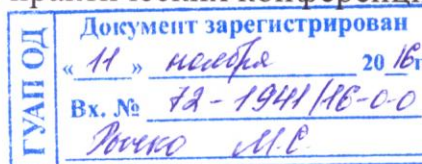 ГУАП ОД
Документ зарегистрирован
« 11 » ноября 20 16г
Вх. № 72-1941/16-0-0
М.С.